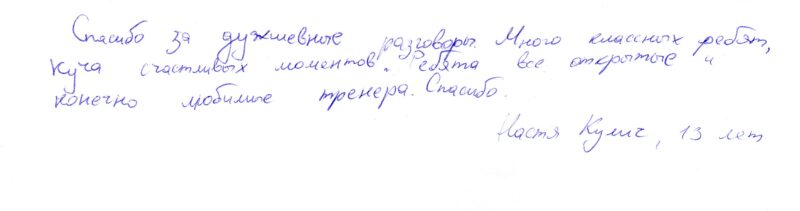 Спасибо за дужшевные разговоры. Много классных ребят,
куча счастливых моментов. Ребята все открытые и
конечно любимые тренера. Спасибо.
Настя Кулич, 13 лет